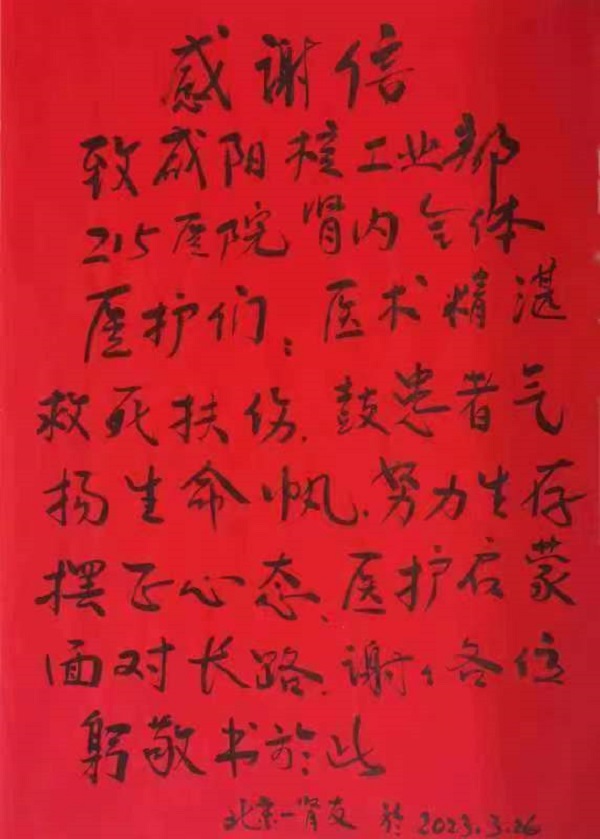 感谢信
致咸阳核工业部
215医院肾内全体
医护们：医术精湛
救死扶伤、鼓患者气
扬生命帆、努力生存
摆正心态、医护启蒙
面对长路、谢谢各位
躬敬书於此
北京一肾友 於2023.3.26